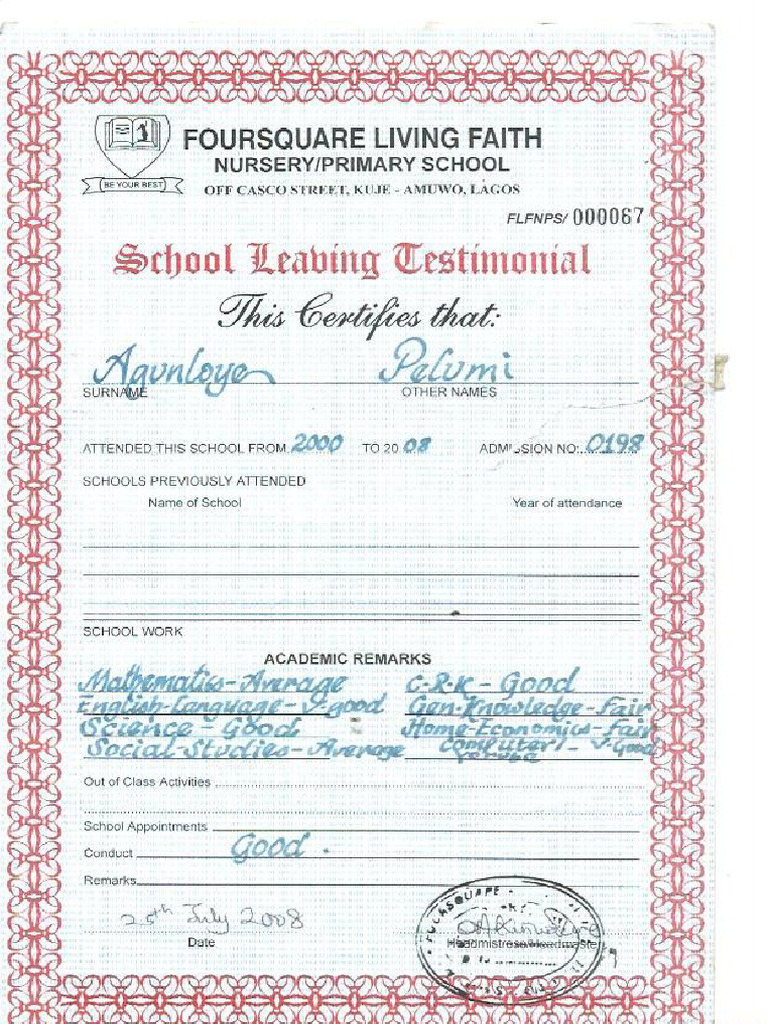 FOURSQUARE LIVING FAITH
NURSERY/PRIMARY SCHOOL
BE YOUR BEST
OFF CASCO STREET, KUJE - AMUWO, LAGOS
FLFNPS/ 000067
School Leaving Testimonial
This Certifies that:
Agunloye Pelumi
SURNAME OTHER NAMES
ATTENDED THIS SCHOOL FROM 2000 TO 20 08 ADMISSION NO: 0198
SCHOOLS PREVIOUSLY ATTENDED
Name of School Year of attendance
SCHOOL WORK
ACADEMIC REMARKS
Mathematics - Average C.R.K - Good
English-Language - V.good Gen.Knowledge - Fair
Science - Good Home-Economics - Fair
Social-Studies - Average Computer / - V.Good
Yoruba
Out of Class Activities
School Appointments
Conduct Good .
Remarks
25th July 2008
Date Headmistress/Headmaster
FOURSQUARE